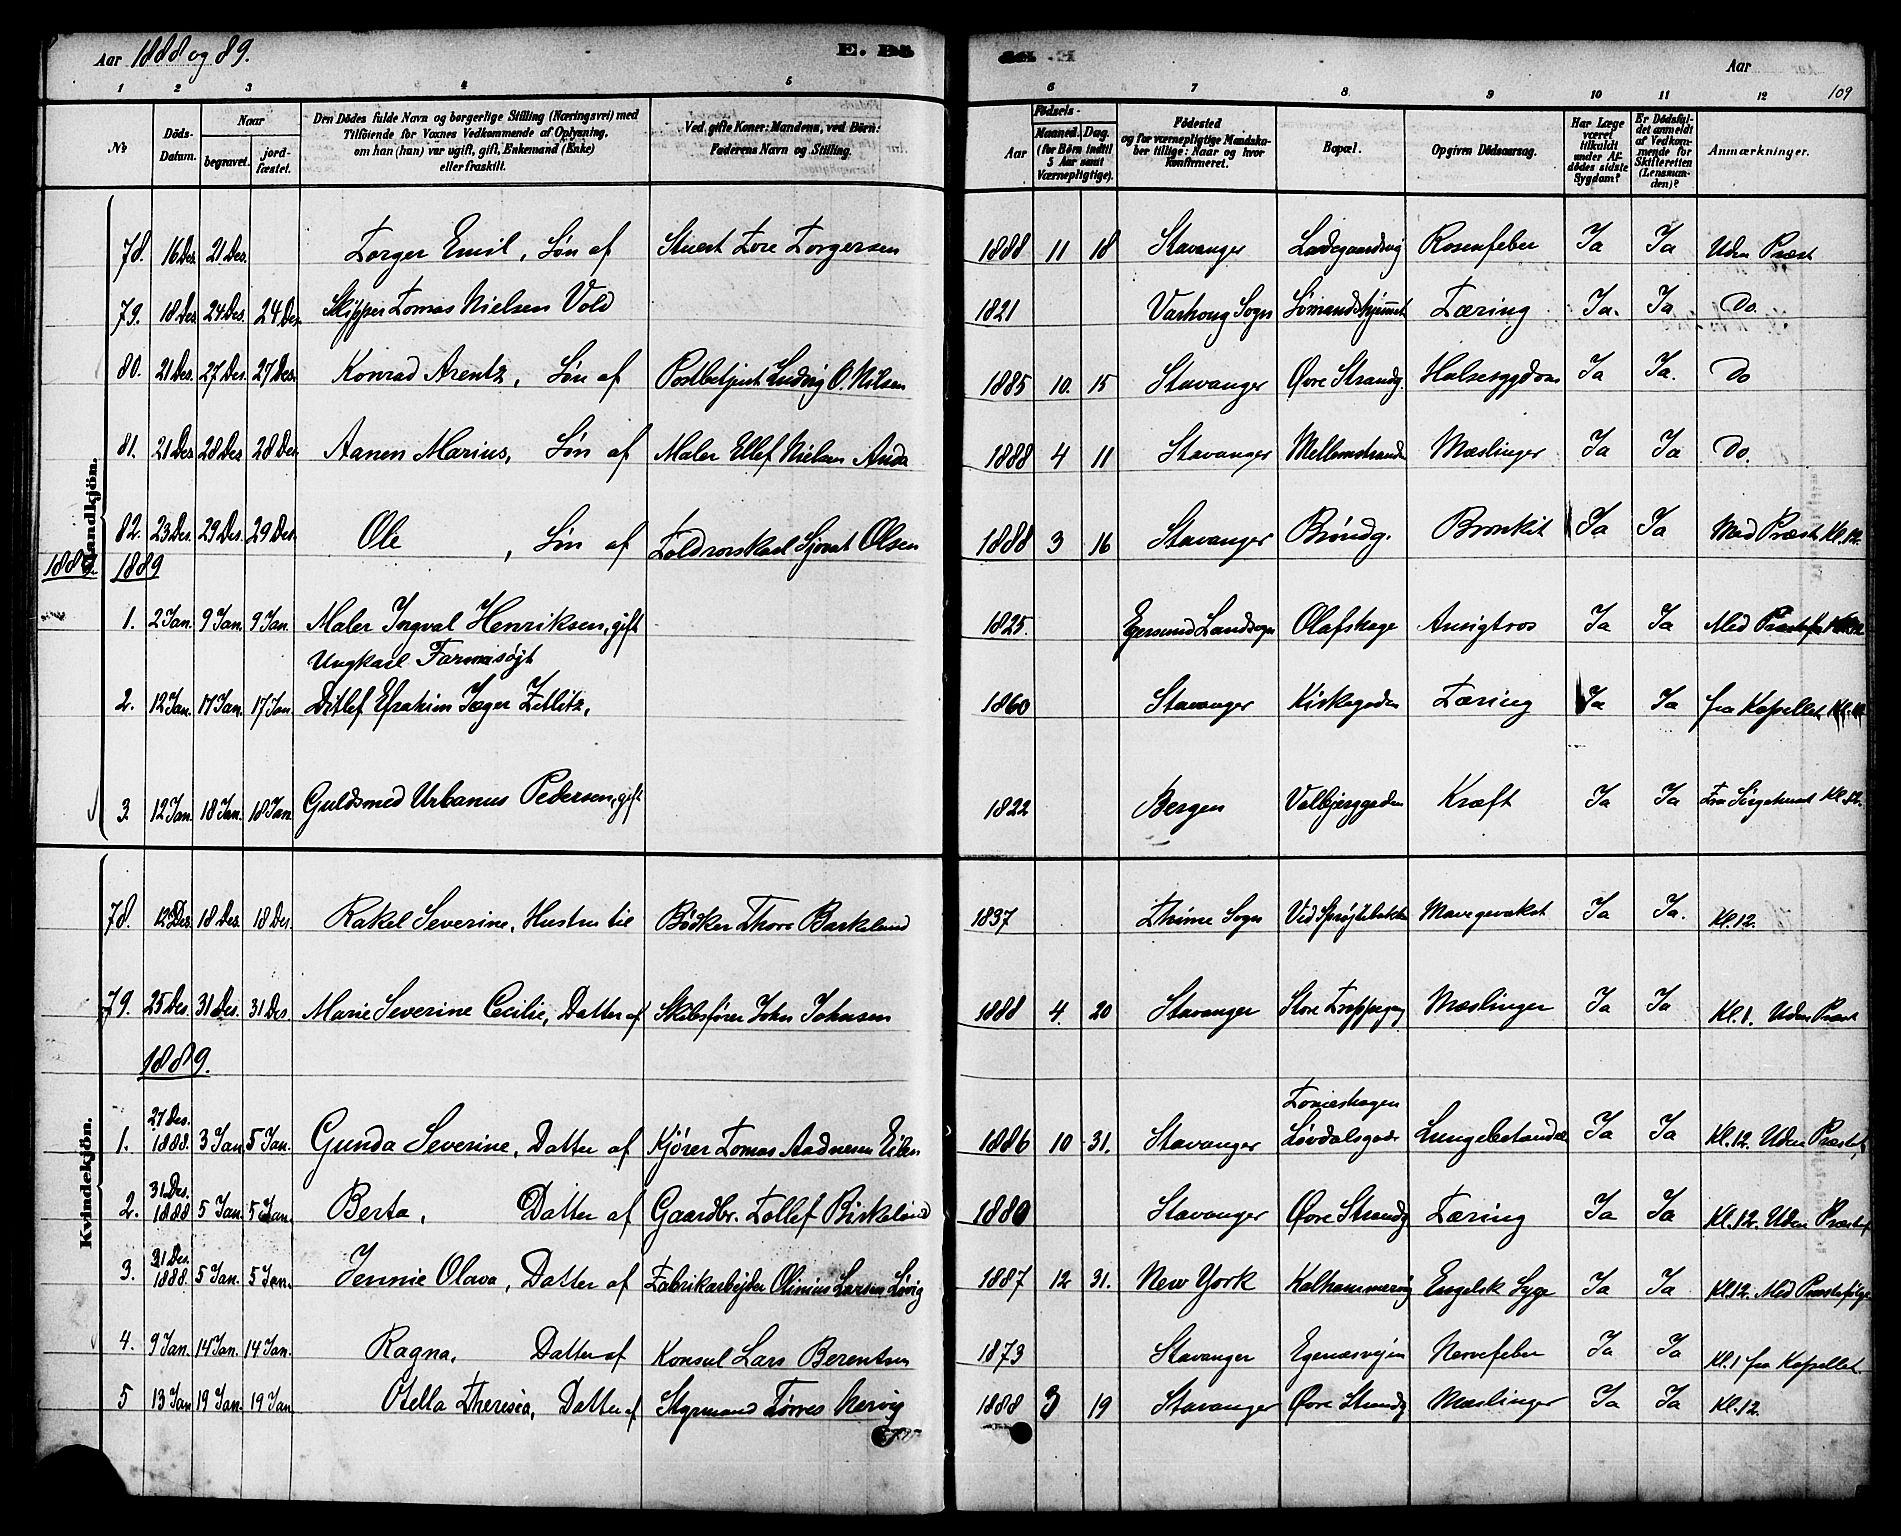 Aar 1888 og 89.
E. Dö
Aar
109
1 2 3 4 5 6 7 8 9 10 11 12
No
Döds-Datum.
Naar
begravet.
jordfæstet.
Den Dödes fulde Navn og borgerlige Stilling (Næringsvei) med
Tilföiende for Voxnes Vedkommende af Oplysning,
om han (hun) var ugift, gift, Enkemand (Enke)
eller fraskilt.
Ved gifte Koner: Mandens, ved Börn:
Faderens Navn og Stilling.
Födsels-
Aar
Maaned. Dag.
(for Börn indtil
5 Aar samt
Værnepligtige).
Födested
og for værnepligtige Mandskaber
tillige: Naar og hvor
konfirmeret.
Bopæl.
Opgiven Dödsaarsag.
Har Læge
været
tilkaldt
under Afdödes
sidste
Sygdom?
Er Dödsfaldet
anmeldt
af Vedkommende
for
Skifteretten
(Lensmanden)?
Anmærkninger.
Mandkjön.
78. 16 Des 21 Des. Torger Emil, Søn af Stuert Tore Torgersen 1888 11 18 Stavanger Ladegaardsvej Rosenfeber Ja Ja Uden Præst
79. 18 Des 24 Des. 24 Des. Skipper Tomas Nielsen Vold 1821 Varhoug Sogn Sømandshjemmet Tæring Ja. Ja Do.
80. 21 Des. 27 Des. 27 Des. Konrad Arentz, Søn af Postbetjent Ludvig O. Nilsen 1885 10. 15 Stavanger Øvre Strandg. Halsesygdom Ja Ja. Do
81. 21 Des 28 Des 28 Des Aanen Marius, Søn af Maler Ellef Nielsen Anda 1888 4 11 Stavanger Mellemstranden Mæslinger Ja Ja Do.
82. 23 Des. 29 Des. 29 Des. Ole, Søn af Toldrorskarl Sjovat Olsen 1888 3 16 Stavanger Brøndg. Bronkit Ja Ja Med Præst Kl. 12.
1889. 1889
1. 2 Jan. 9 Jan. 9 Jan. Maler Ingval Henriksen, gift 1825. Egersund Landsogn Olafskage Ansigtros Ja Ja Med
Ungkarl Farmasøjt
2. 12 Jan. 17 Jan. 17 Jan. Ditlef Efrahim Jæger Zetlitz, 1860 Stavanger Kirkegaden Tæring Ja Ja fra Kapellet
3. 12 Jan. 18 Jan. 18 Jan. Guldsmed Urbanus Pedersen, gift 1822 Bergen Valbjerggaden Kræft Ja Ja Fra Sørgehuset Kl. 12.
Kvindekjön.
78. 12 Des. 18 Des. 18 Des. Rakel Severine, Hustru til Bødker Thore Barkeland 1837 Thime Sogn Ved Sprøjtebakken Mavegevækst Ja Ja. Kl. 12.
79. 25 Des. 31 Des. 31 Des. Marie Severine Cecilie, Datter af Skibsfører John Johnsen 1888 4. 20 Stavanger Store Trappegang Mæslinger Ja Ja Kl. 1. Uden Præst
1889.
1. 27 Des. 1888. 3 Jan. 5 Jan. Gunda Severine, Datter af Kjører Tomas Aadnesen 1886 10 31. Stavanger Løvdalsgade Lungebetændelse Ja Ja Kl. 12. Uden Præstef.
2. 31 Des. 1888 5 Jan. 5 Jan. Berta, Datter af Gaardbr. Tollef Birkeland 1880 Stavanger Øvre Strandg Tæring Ja Ja Kl. 12. Uden Præstef
3. 31 Des. 1888. 5 Jan. 5 Jan. Jennie Olava, Datter af Fabrikarbejder Olinius Larsen Løvig 1887 12 31. New York Kalhammervig Engelsk Syge Ja Ja Kl. 12. Med Præstefølge
4. 9 Jan. 14 Jan. 14 Jan. Ragna, Datter af Konsul Lars Berentsen 1873 Stavanger Egenæsvejen Nervefeber Ja Ja Kl. 1 fra Kapellet
5 13 Jan 19 Jan. 19 Jan Otella Theresia, Datter af Styrmand Tørres Nervig 1888 3 19 Stavanger Øvre Strandg Mæslinger Ja Ja Kl. 12.